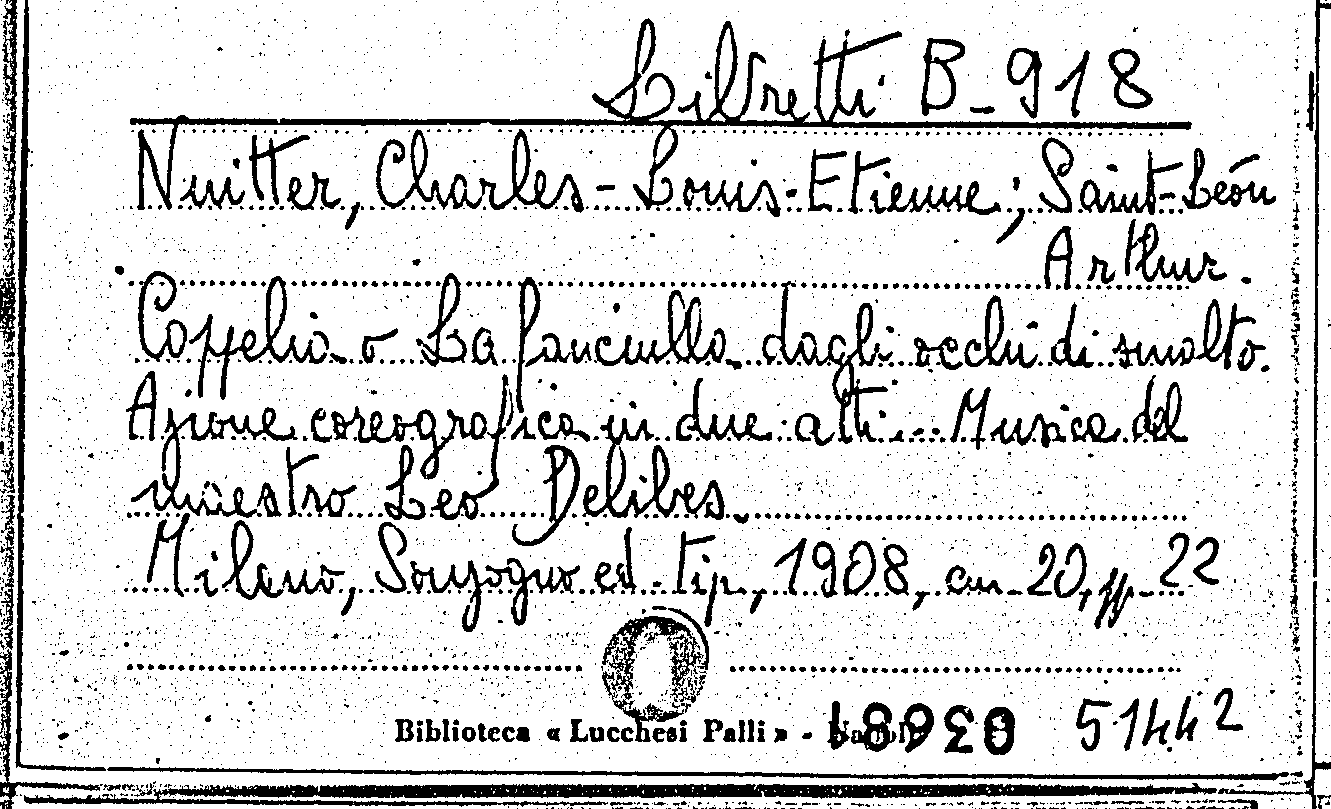 Libretti B-918
Nuitter, Charles-Louis-Etienne; Saint-Léon
Arthur.
Coppelia o La fanciulla dagli occhi di smalto.
Azione coreografica in due atti... Musica del
maestro Leo Delibes.
Milano, Sonzogno ed. tip., 1908, cm. 20, pp. 22
Biblioteca « Lucchesi Palli » - Napoli
51442